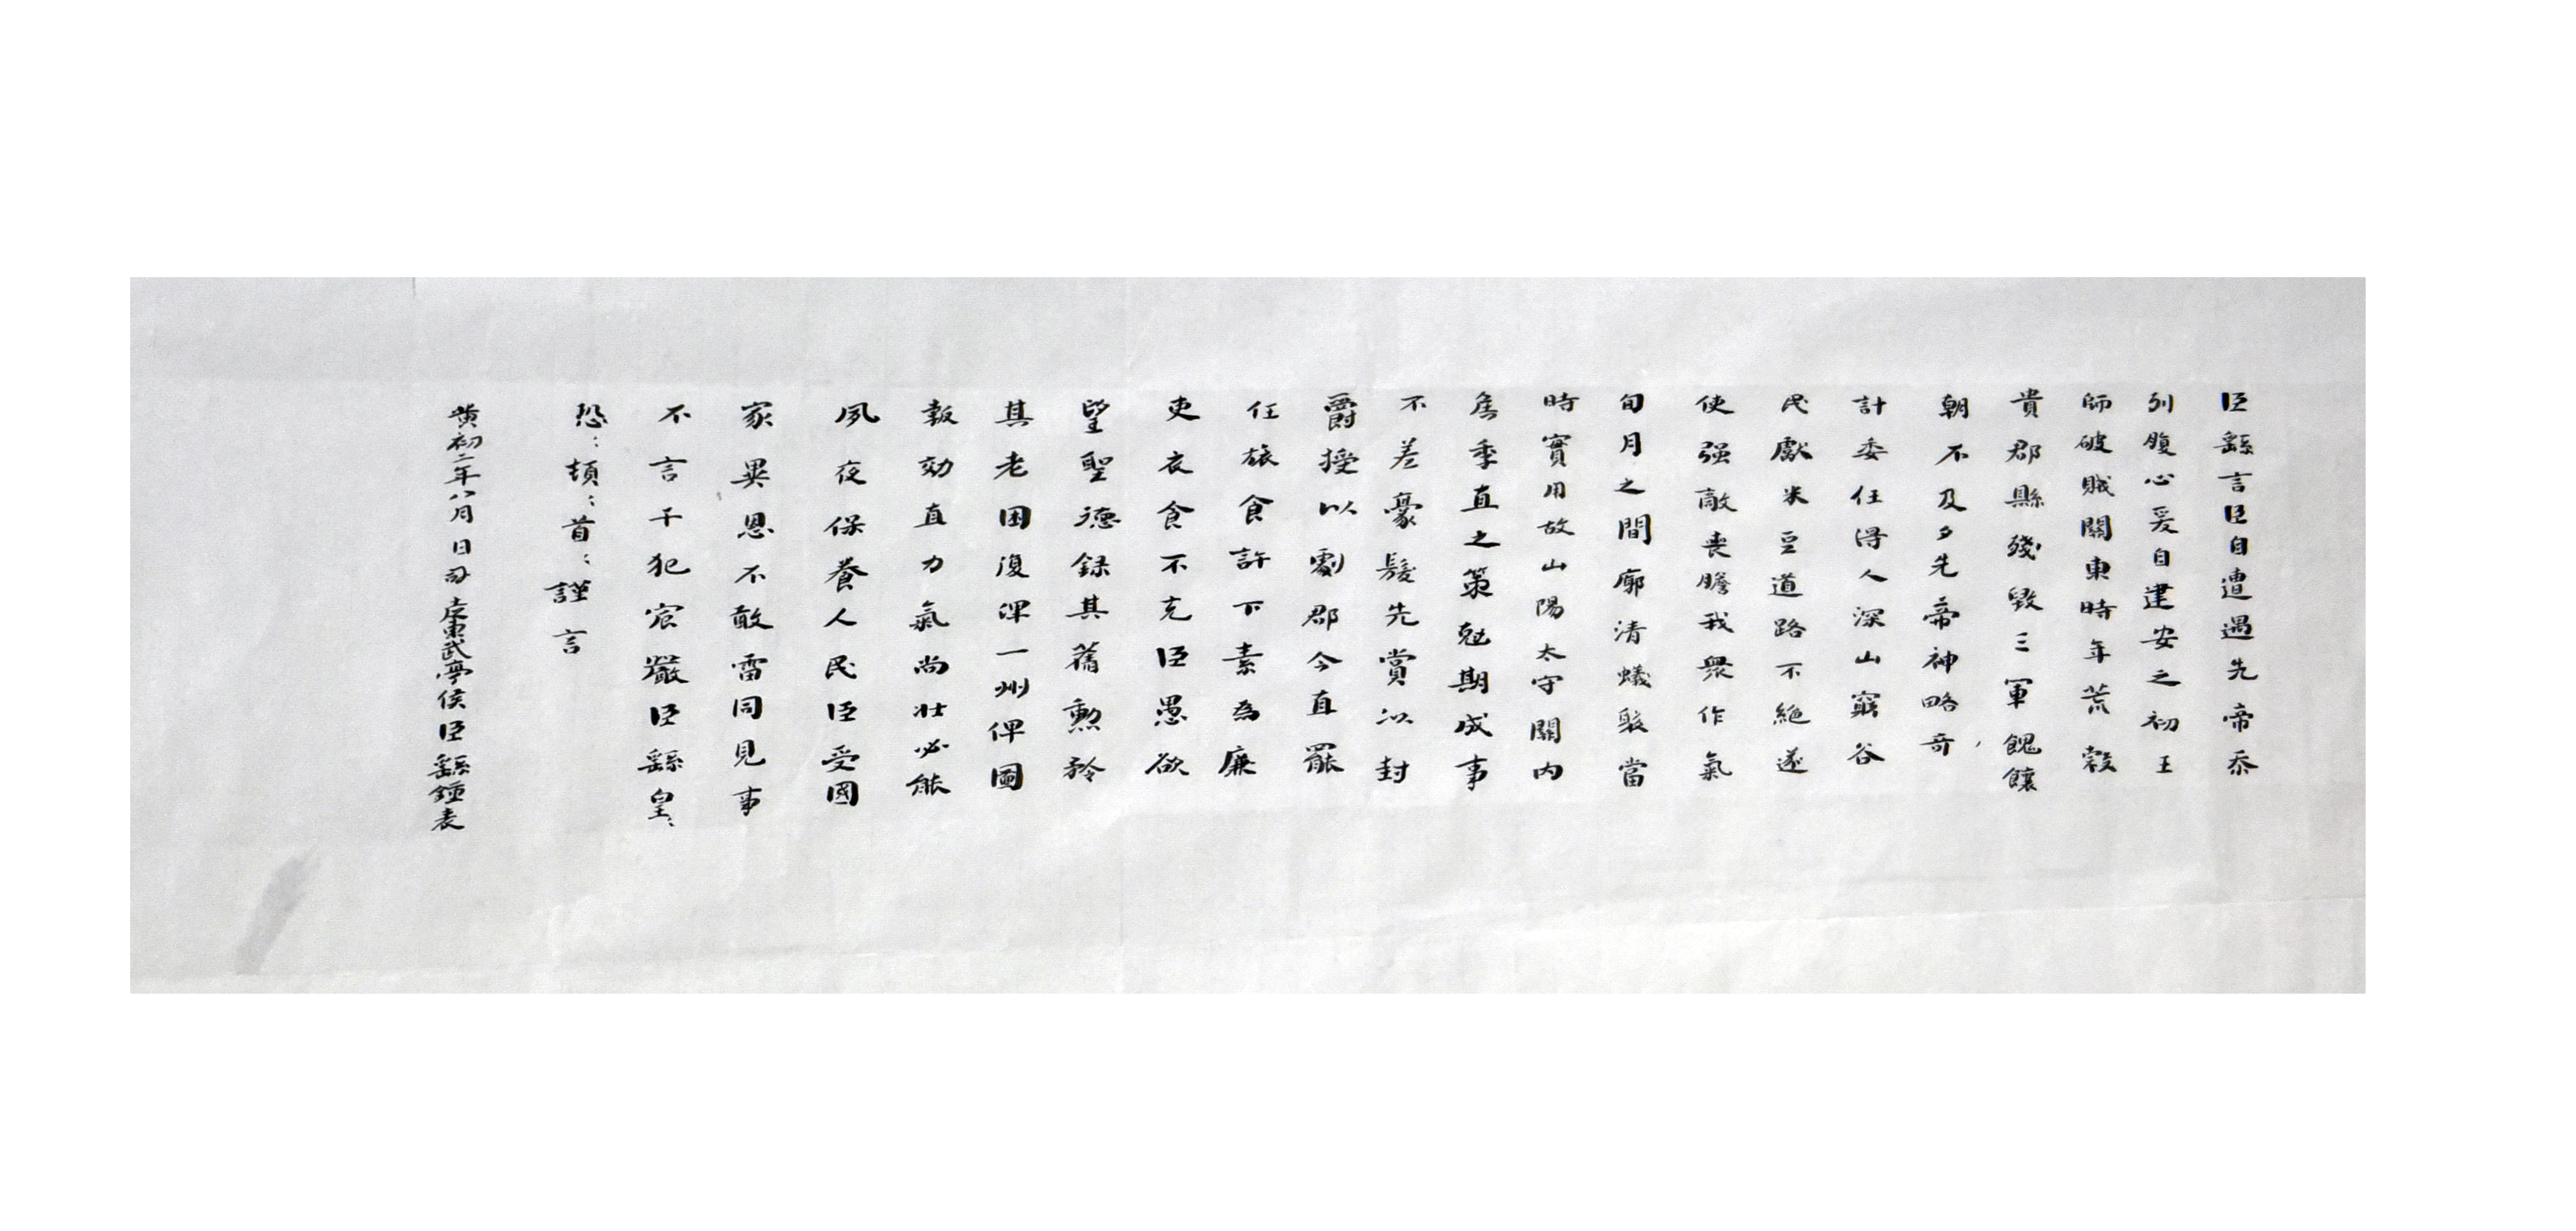 臣繇言臣自遭遇先帝忝
列腹心爰自建安之初王
師破賊關東時年荒穀
貴郡縣殘毀三軍餽饟
朝不及夕先帝神略奇
計委任得人深山窮谷
民獻米豆道路不絕遂
使强敵喪膽我衆作氣
旬月之間廓清蟻聚當
時實用故山陽太守關內
侯季直之策尅期成事
不差豪髮先賞以封
爵授以劇郡今直罷
任旅食許下素為廉
吏衣食不充臣愚欲
望聖德録其舊勳矜
其老困復俾一州俾圖
報効直力氣尚壯必能
夙夜保養人民臣受國
家異恩不敢雷同見事
不言干犯宸嚴臣繇皇:
恐:頓:首:謹言
黃初二年八月 日司空東武亭侯臣繇鍾表